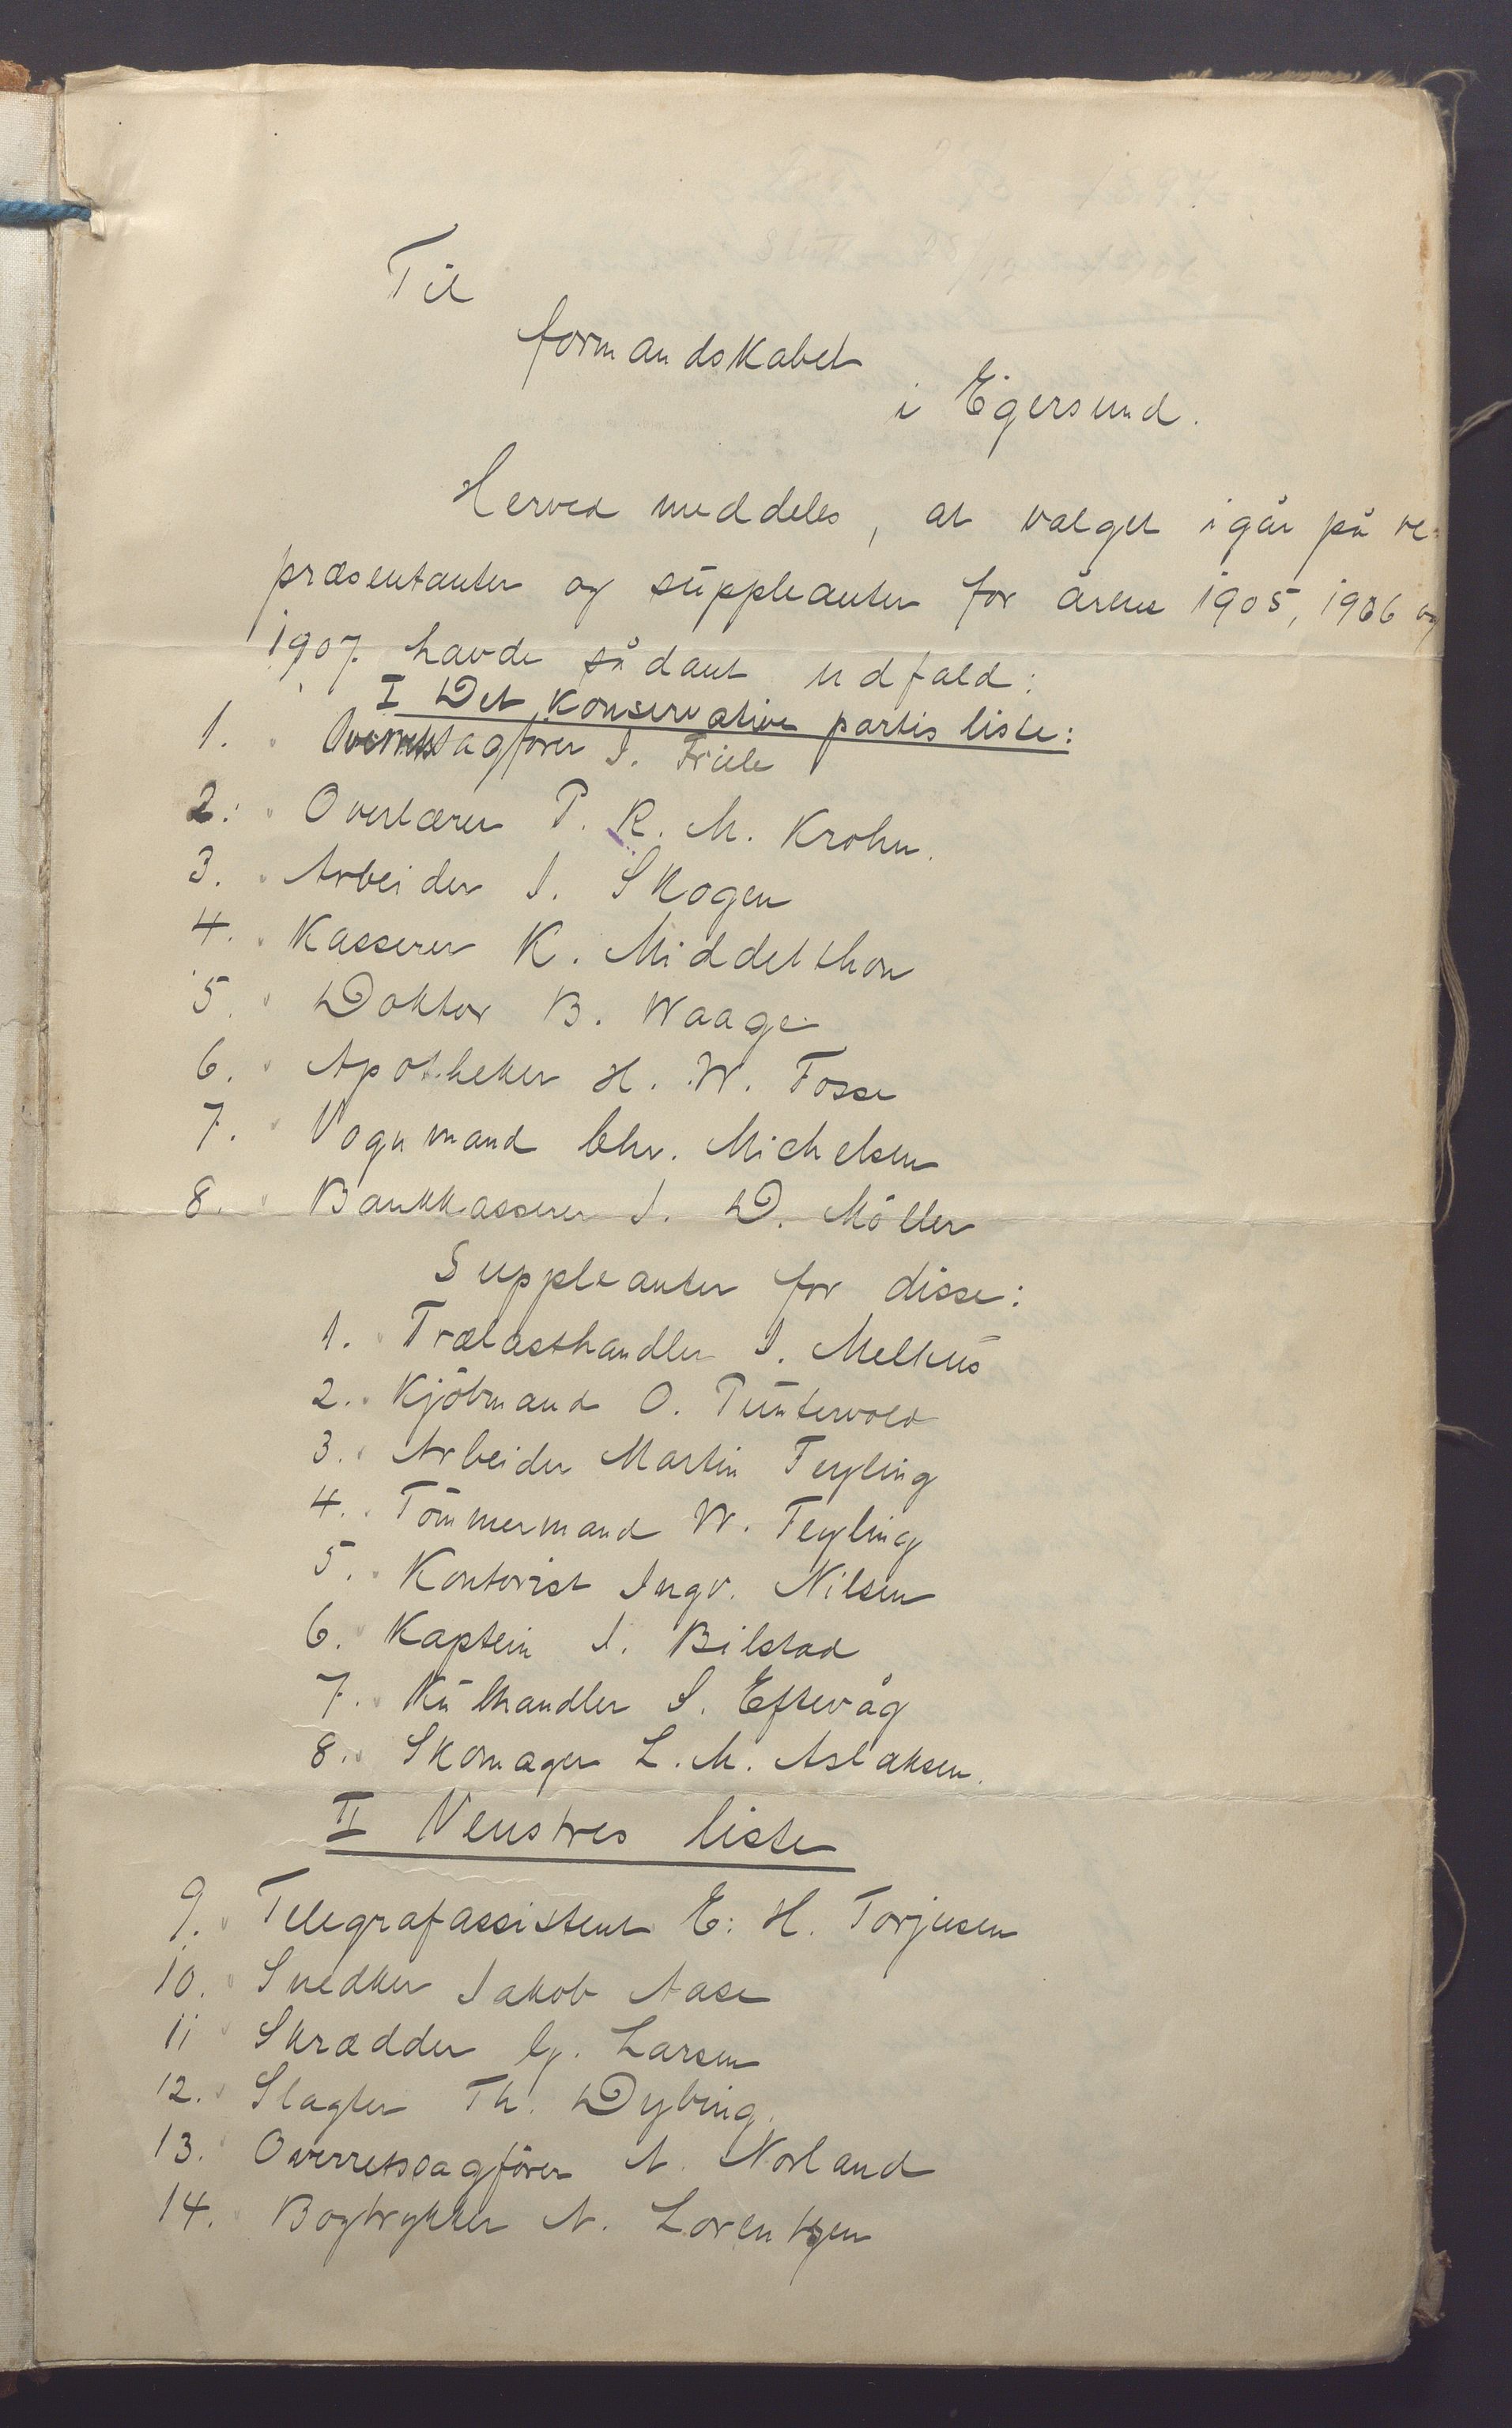 Til
formandskabet
i Egersund.
Herved meddeles, at valget igår på re-
præsentanter og suppleanter for årene 1905, 1906 og
1907 havde sådant udfald:
I Det konservative partis liste:
1. Overretssagfører J. Friele
2. Overlærer P. R. M. Krohn.
3. Arbeider J. Skogen
4. Kasserer K. Middelthon
5. Doktor B. Waage
6. Apotheker H. W. Fosse
7. Vognmand Chr. Michelsen
8. Bankkasserer J. D. Möller
Suppleanter for disse:
1. Trælasthandler J. Melhus
2. Kjöbmand O. Puntervold
3. Arbeider Martin Feyling
4. Tömmermand W. Feyling
5. Kontorist Ingv. Nilsen
6. Kaptein J. Bilstad
7. Kulhandler S. Eftevåg
8. Skomager L. M. Aslaksen.
II Venstres liste
9. Telegrafassistent E. H. Torjusen
10. Snedker Jakob Aase
11 Skrædder Larsen
12. Slagter Th. Dybing.
13. Overretssagförer A. Norland
14. Bogtrykker A. Lorentzen